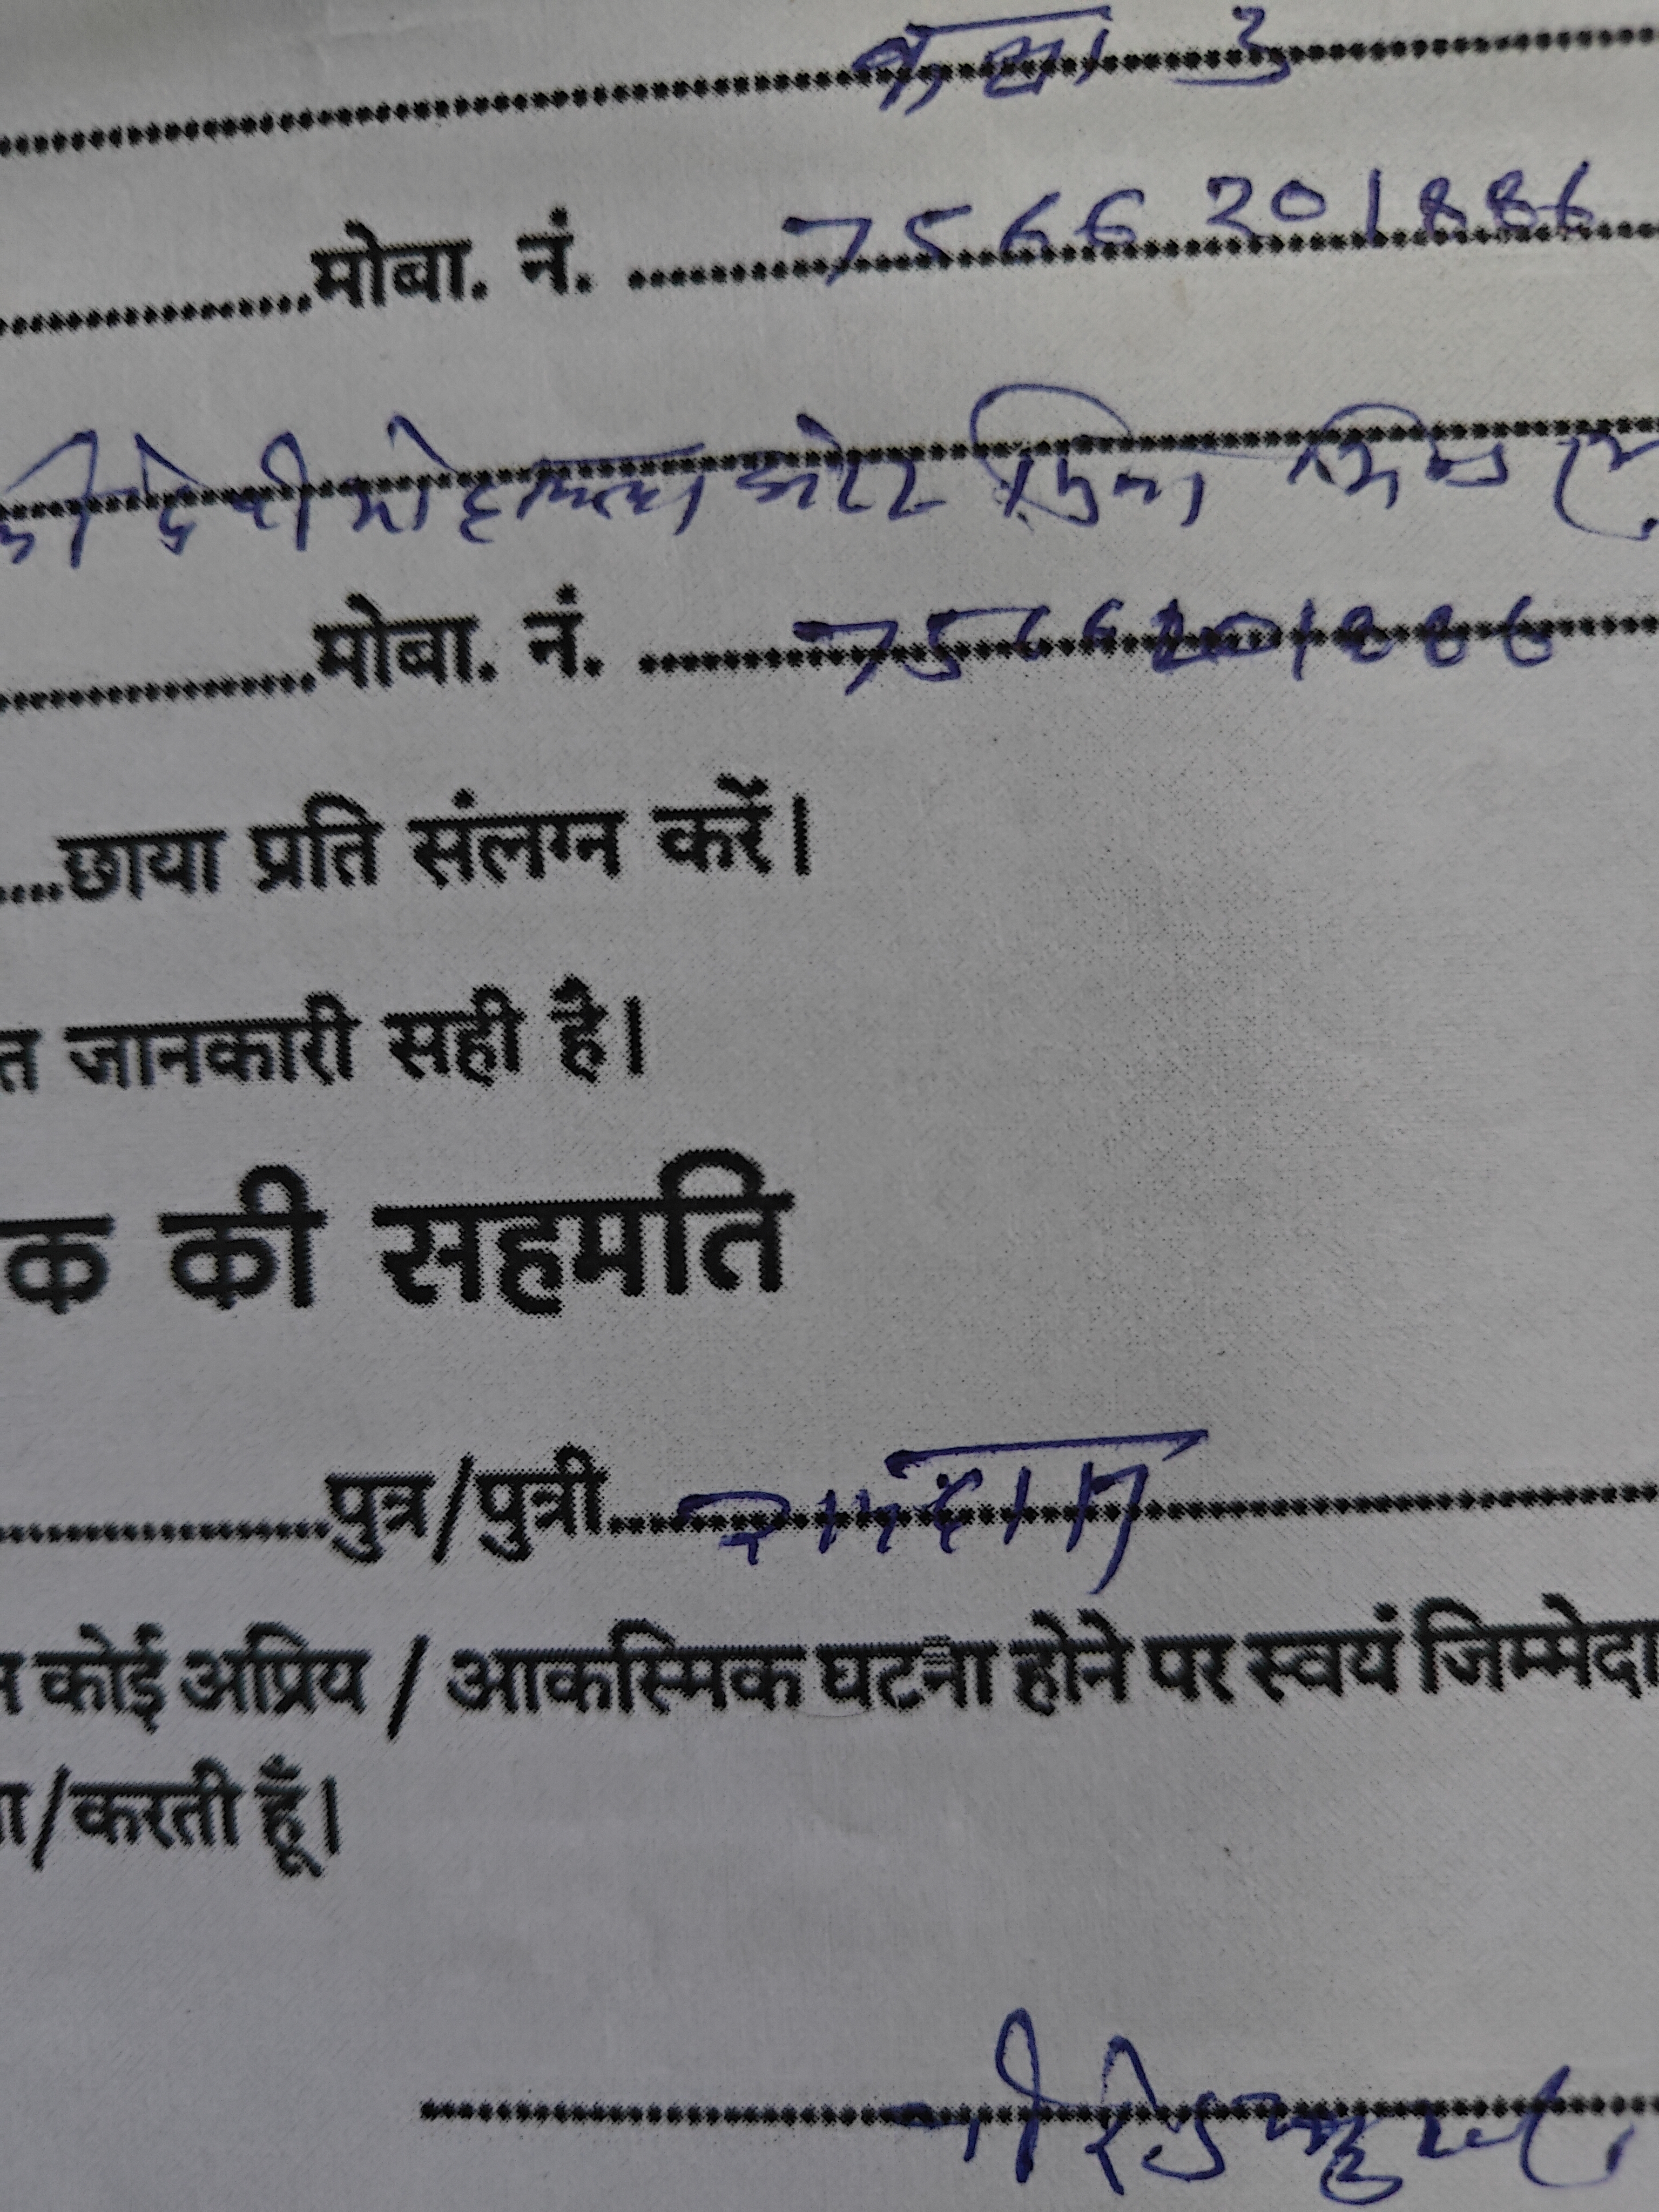 कक्षा 3
मोबा. नं. 7566201886
देवी मोहल्ला
मोबा. नं. 7566201886
छाया प्रति संलग्न करें।
त जानकारी सही है।
क की सहमति
पुत्र/पुत्री रामदास
कोई अप्रिय / आकस्मिक घटना होने पर स्वयं जिम्मेदा
/करती हूँ।